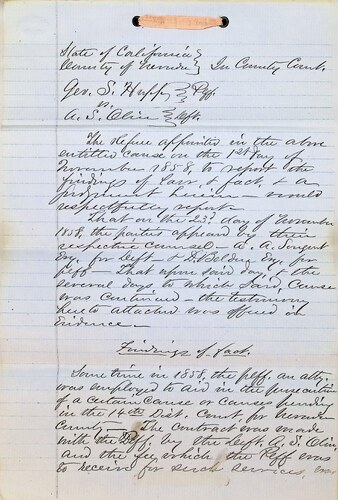 State of California }
County of Nevada } In County Court.
Geo. S. Hupp } Plff
vs.
A. S. Olin } Deft.
The referee appointed in the above
entitled cause on the 1st day of
November 1858, to report the
findings of law, & fact, & a
therein - would
respectfully report -
That on the 23d day of November
1858, the parties appeared by their
respective counsel - A. A. Sargent
Esq. for Deft. & D. Belden Esq. for
plff - That upon said day, & the
several days to which said cause
was continued - the testimony
hereto attached was offered in
evidence -
Findings of fact.
Some time in 1858, the plff. an atty.
was employed to aid in the prosecution
of a certain cause or causes pending
in the 14th Dist. Court for Nevada
County - The contract was made
with the Plff. by the Deft. A. S. Olin
and the fee which the Plff was
to receive for such services, was